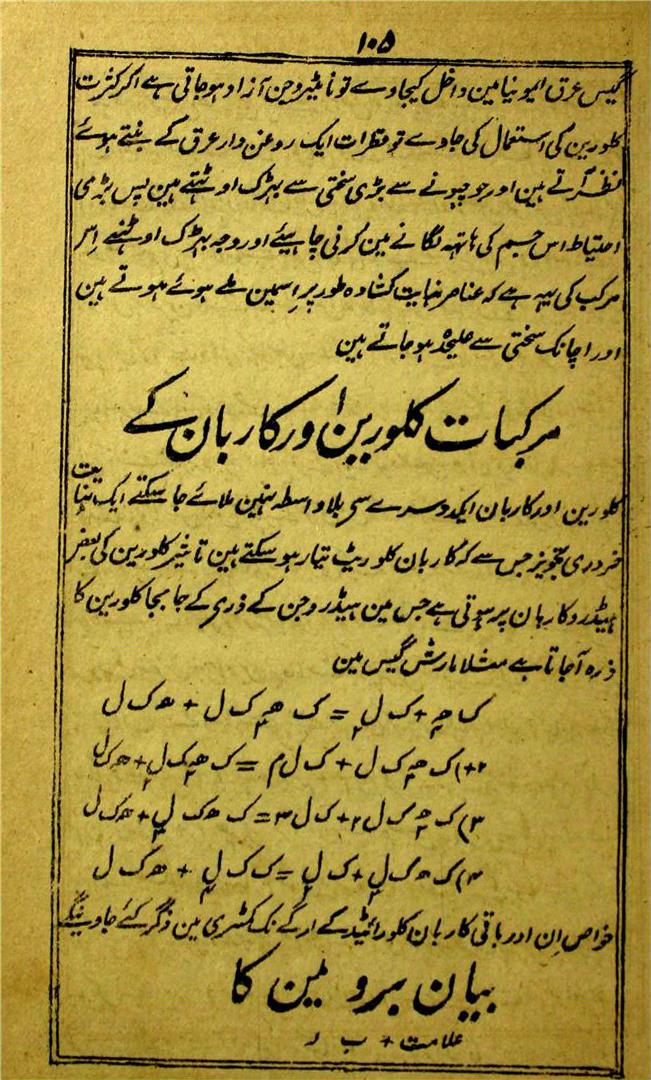 ۱۰۵
گیس عرق امیونیا مین داخل کیجاوے تو نائیٹروجن آزاد ہوجاتی ہے اگر کثرت
کلورین کی استعمال کی جاوے تو قطرات ایک روغن دار عرق کے بنتے ہوئے
نظر گرتے ہین اور جو چہونے سے بڑی سختی سے بہڑک اوٹہتے ہین پس بڑی
احتیاط اس جسم کی ہاتہہ لگانے مین کرنی چاہیئے اور وجہ بہڑک اوٹہنے اس
مرکب کی یہہ ہے کہ عناصر نہایت کشادہ طور پر اسمین ملے ہوئے ہوتے ہین
اور اچانک سختی سے علیحدہ ہوجاتے ہین
مرکبات کلورین اور کاربان کے
کلورین اور کاربان ایکدوسرے سی بلاواسطہ نہین ملائے جا سکتے ایک نہایت
ضروری تجویز جس سے کہ کاربان کلوریٹ تیار ہو سکتے ہین تاثیر کلورین کی بعض
ہیڈروکاربان پر ہوتی ہے جس مین ہیڈروجن کے ذری کے جابجا کلورین کا
ذرہ آجاتا ہے مثلا مارش گیس مین
ک ھ۴ + ک ل۲ = ک ھ۳ ک ل + ھ ک ل
۲+) ک ھ۳ ک ل + ک ل ۲ = ک ھ۲ ک ل۲ + ھ ک ل
۳) ک ھ۲ ک ل ۲ + ک ل ۲ = ک ھ ک ل۳ + ھ ک ل
۴) ک ھ ک ل۳ + ک ل۲ = ک ک ل۴ + ھ ک ل
خواص ان اور باقی کاربان کلورائیڈ کے ارگے نک کمسٹری مین ذکر کئے جاوینگے
بیان برومین کا
علامت + ب ر